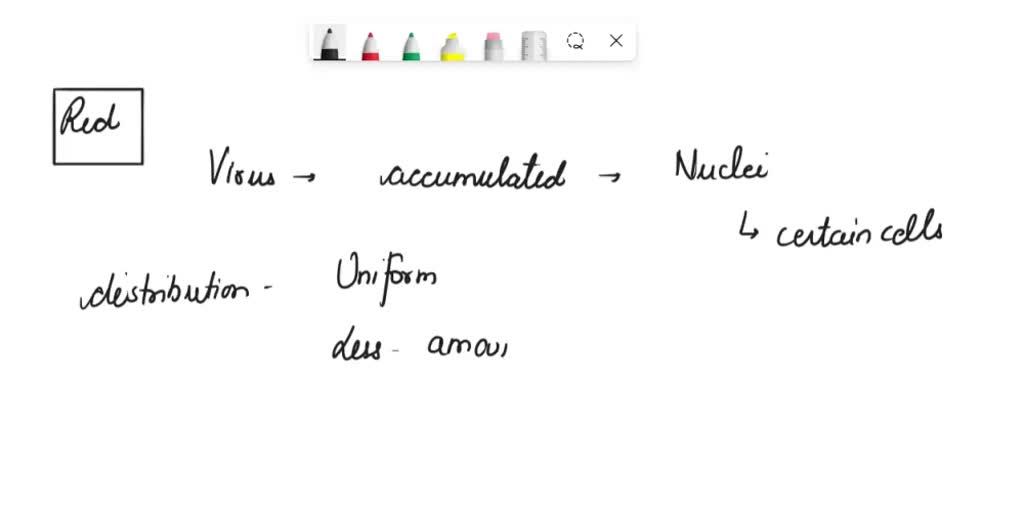 Red
Virus → accumulated → Nuclei
↳ certain cells
distribution - Uniform
less - amou